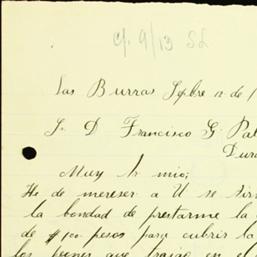 C/. 9/13 SL
Las Burras Sepbre 12 de 1
S. D. Francisco G. Pal
Dura
Muy Sr mio;
He de mereser a U se sirv
la bondad de prestarme la
de $100 pesos para cubrir la
los peones que traigo en el